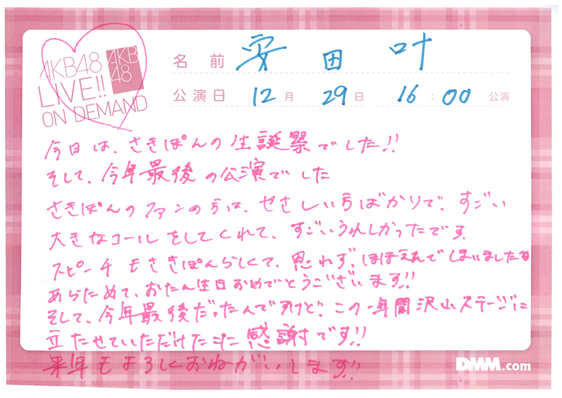 AKB48
LIVE!!
ON DEMAND
AKB
48
名 前 安田 叶
公演日 12月 29日 16:00 公演
今日は、さきぽんの生誕祭でした!!
そして、今年最後の公演でした
さきぽんのファンの方は、やさしい方ばかりで、すごい
大きなコールをしてくれて、すごいうれしかったです
スピーチもさきぽんらしくて、思わず、ほほえんでしまいました
あらためて、おたん生日おめでとうございます!!
そして、今年最後だったんですけど、この一年間沢山ステージに
立たせていただけたことに感謝です!!
来年もよろしくおねがいします!!
DMM.com